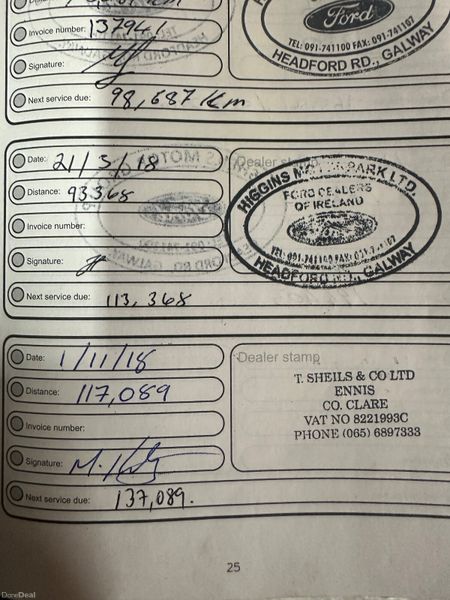 Invoice number: 137941
Signature:
Next service due: 98,687 Km
Ford
TEL: 091-741100 FAX: 091-741107
HEADFORD RD., GALWAY
Date: 21/5/18
Distance: 93368
Invoice number:
Signature:
Next service due: 113,368
Dealer stamp
HIGGINS MOTOR PARK LTD.
FORD DEALERS
OF IRELAND
TEL: 091-741100 FAX: 091-741107
HEADFORD RD., GALWAY
Date: 1/11/18
Distance: 117,089
Invoice number:
Signature:
Next service due: 137,089.
Dealer stamp
T. SHEILS & CO LTD
ENNIS
CO. CLARE
VAT NO 8221993C
PHONE (065) 6897333
25
DoneDeal